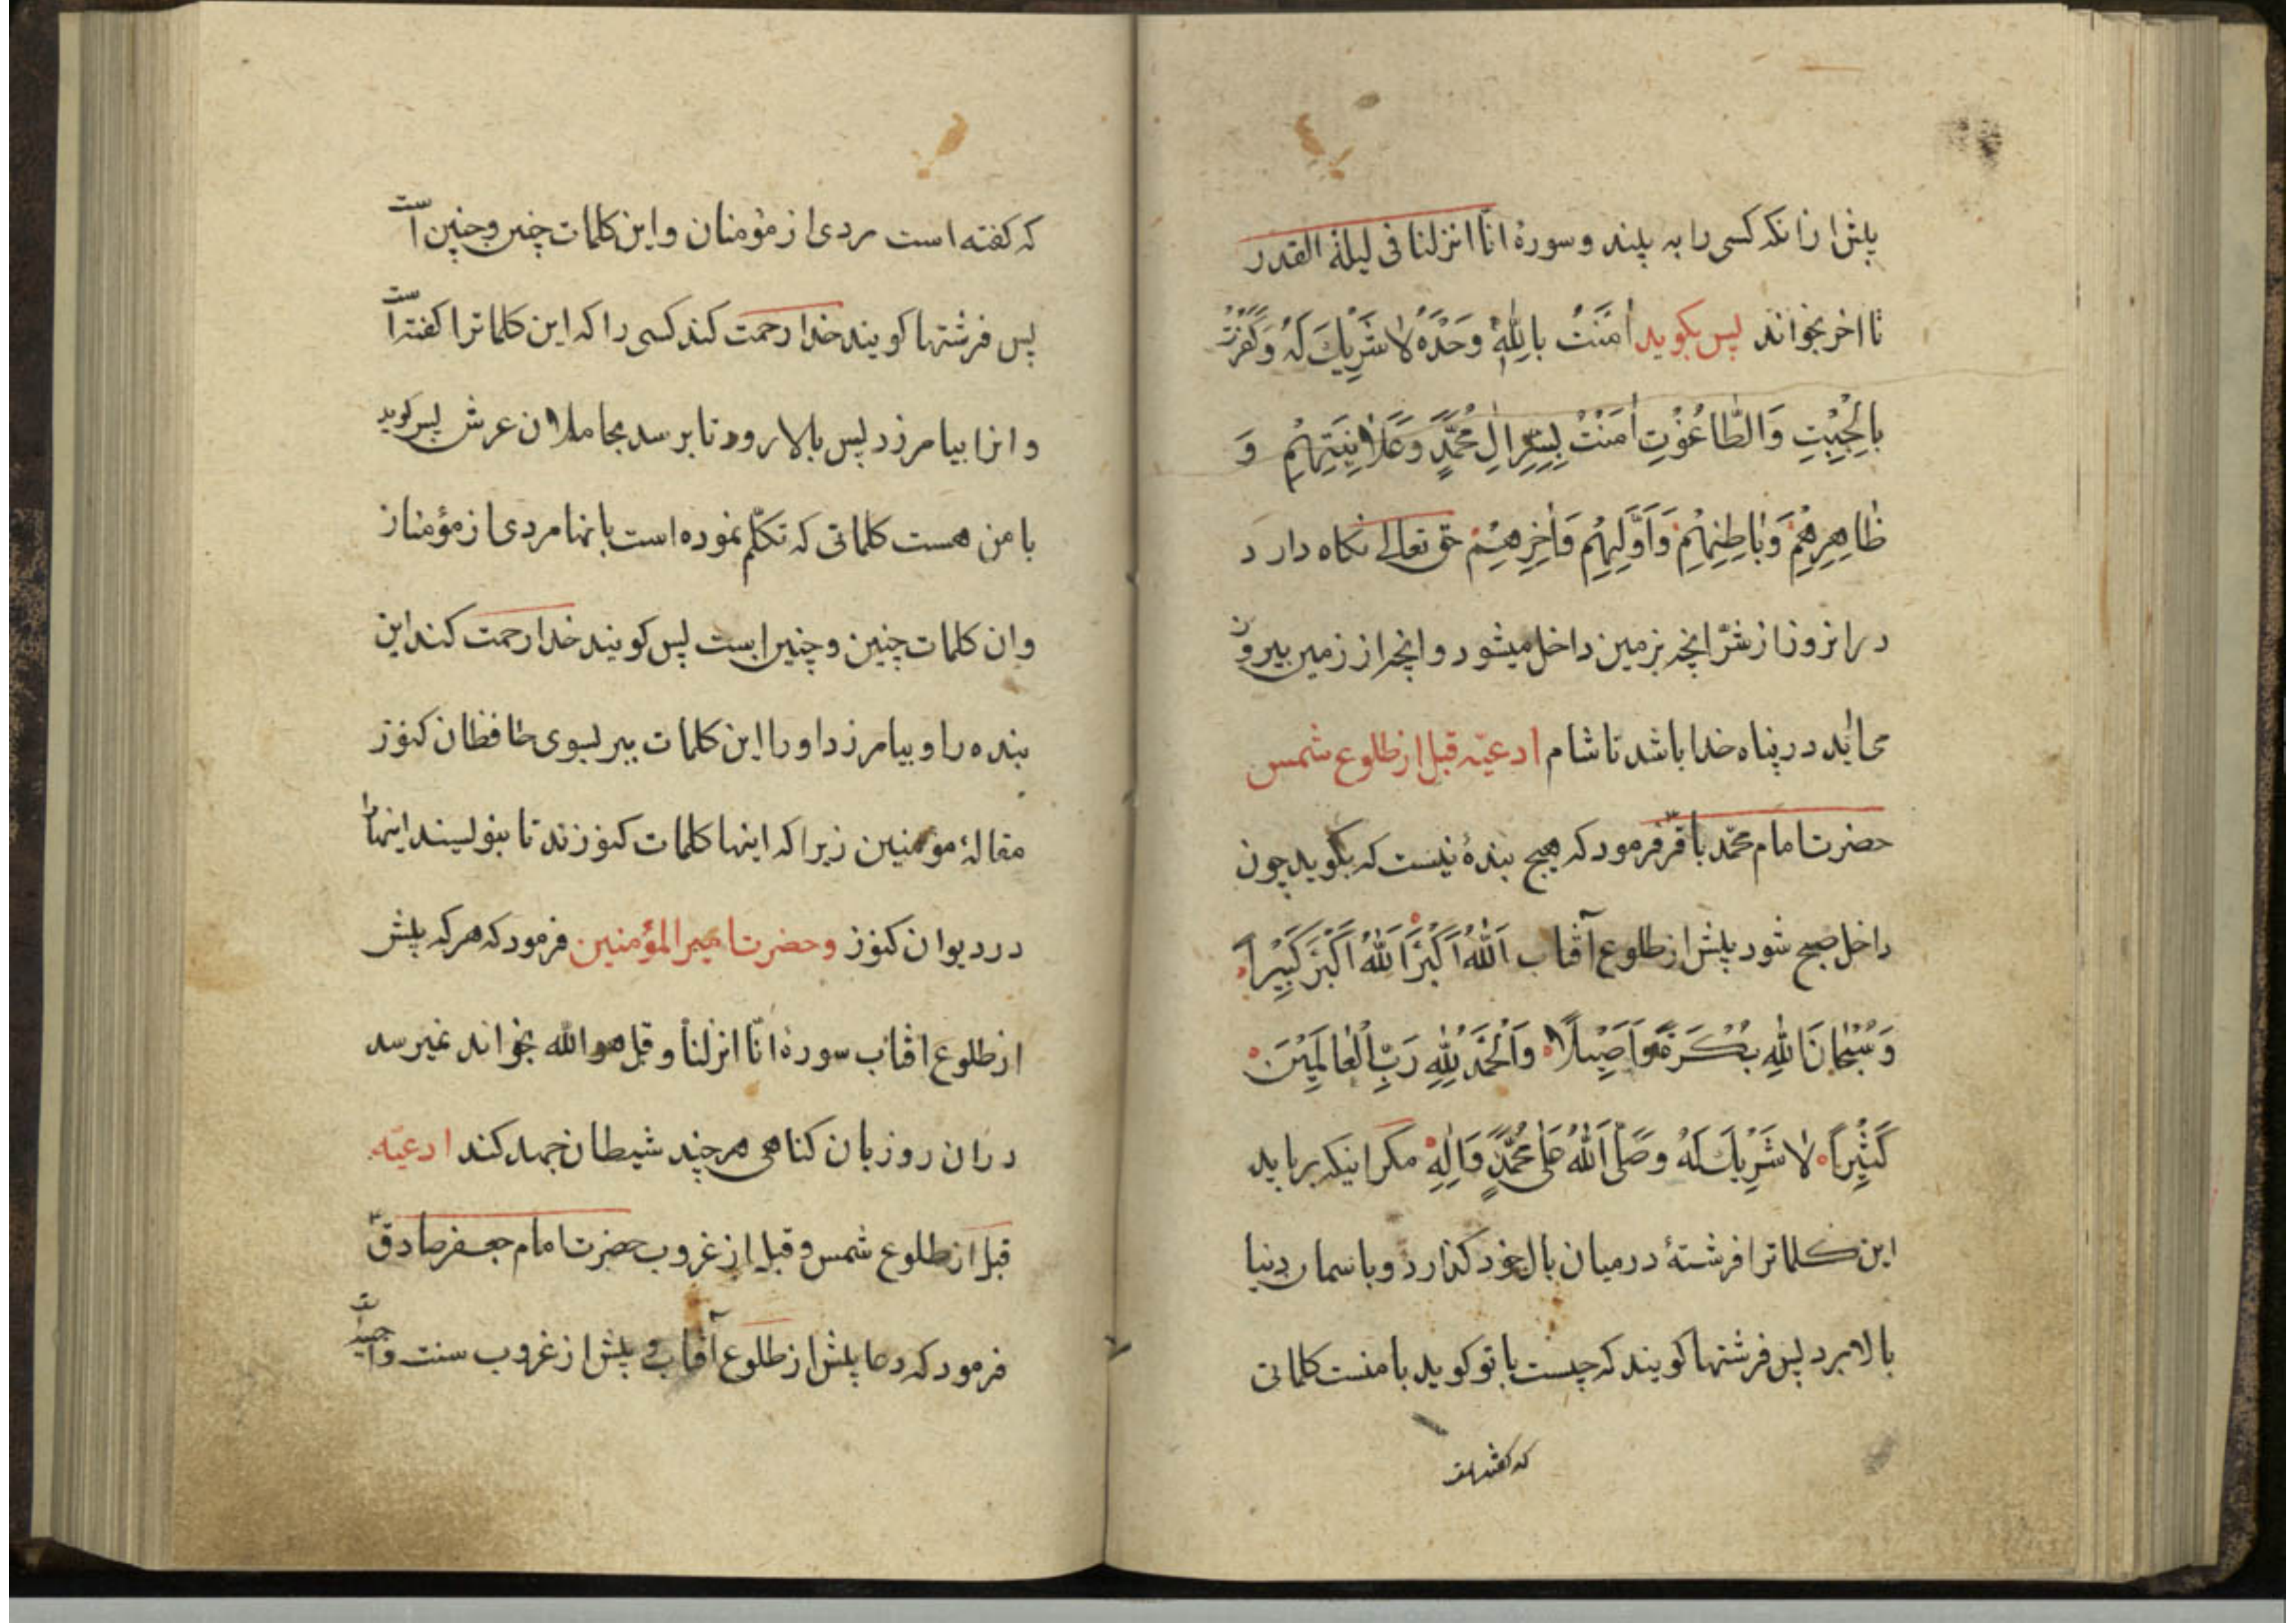 پیش از انکه کسی را به بیند و سورهٔ انّا انزلنا فی لیلة القدر
تا اخر بخواند پس بکوید اٰمَنْتُ بِاللّٰهِ وَحْدَهُ لاٰ شَرِیْكَ لَهُ وَکَفَرْتُ
بِالْجِبْتِ وَالطّٰاغُوْتِ اٰمَنْتُ بِسِرِّ اٰلِ مُحَمَّدٍ وَعَلاٰنِیَتِهِمْ وَ
ظٰاهِرِهِمْ وَبٰاطِنِهِمْ وَاَوَّلِهِمْ وَاٰخِرِهِمْ حق تعالی نکاه دارد
در انروز از شرّ انچه بزمین داخل میشود و انچه از زمین بیرون
می اید در پناه خدا باشد تا شام ادعیّه قبل از طلوع شمس
حضرت امام محمّد باقرؑ فرمود که هیچ بندهٔ نیست که بکوید چون
داخل صبح شود پیش از طلوع آفتاب اَللّٰهُ اَکْبَرُ اَللّٰهُ اَکْبَرُ کَبِیْرًا
وَسُبْحٰانَ اللّٰهِ بُکْرَةً وَاَصِیْلًا وَالْحَمْدُ لِلّٰهِ رَبِّ الْعٰالَمِیْنَ
کَثِیْرًا لاٰ شَرِیْكَ لَهُ وَصَلَّی اللّٰهُ عَلٰی مُحَمَّدٍ وَاٰلِهِ مکر اینکه برباید
این کلماترا فرشتهٔ در میان بال خود کذارد و باسمان دنیا
بالا برد پس فرشتها کویند که چیست با تو کوید با منست کلماتی
که کفته است
که کفته است مردی از مؤمنان و این کلمات چنین و چنین است
پس فرشتها کویند خدا رحمت کند کسی را که این کلماترا کفته است
و انرا بیامرزد پس بالا رود تا برسد بحاملان عرش پس کوید
با من هست کلماتی که تکلّم نموده است بانها مردی از مؤمنان
و ان کلمات چنین و چنین است پس کویند خدا رحمت کند این
بنده را و بیامرزد او را این کلمات ببر بسوی حافظان کنوز
مقالهٔ مؤمنین زیرا که اینها کلمات کنوزند تا بنویسند اینها را
در دیوان کنوز و حضرت امیر المؤمنین فرمود که هر که پیش
از طلوع افتاب سورهٔ انّا انزلنا و قل هو الله بخواند نمیرسد
در ان روز بان کناهی هر چند شیطان جهد کند ادعیّه
قبل از طلوع شمس و قبل از غروب حضرت امام جعفر صادقؑ
فرمود که دعا پیش از طلوع آفتاب و پیش از غروب سنت واجبه است